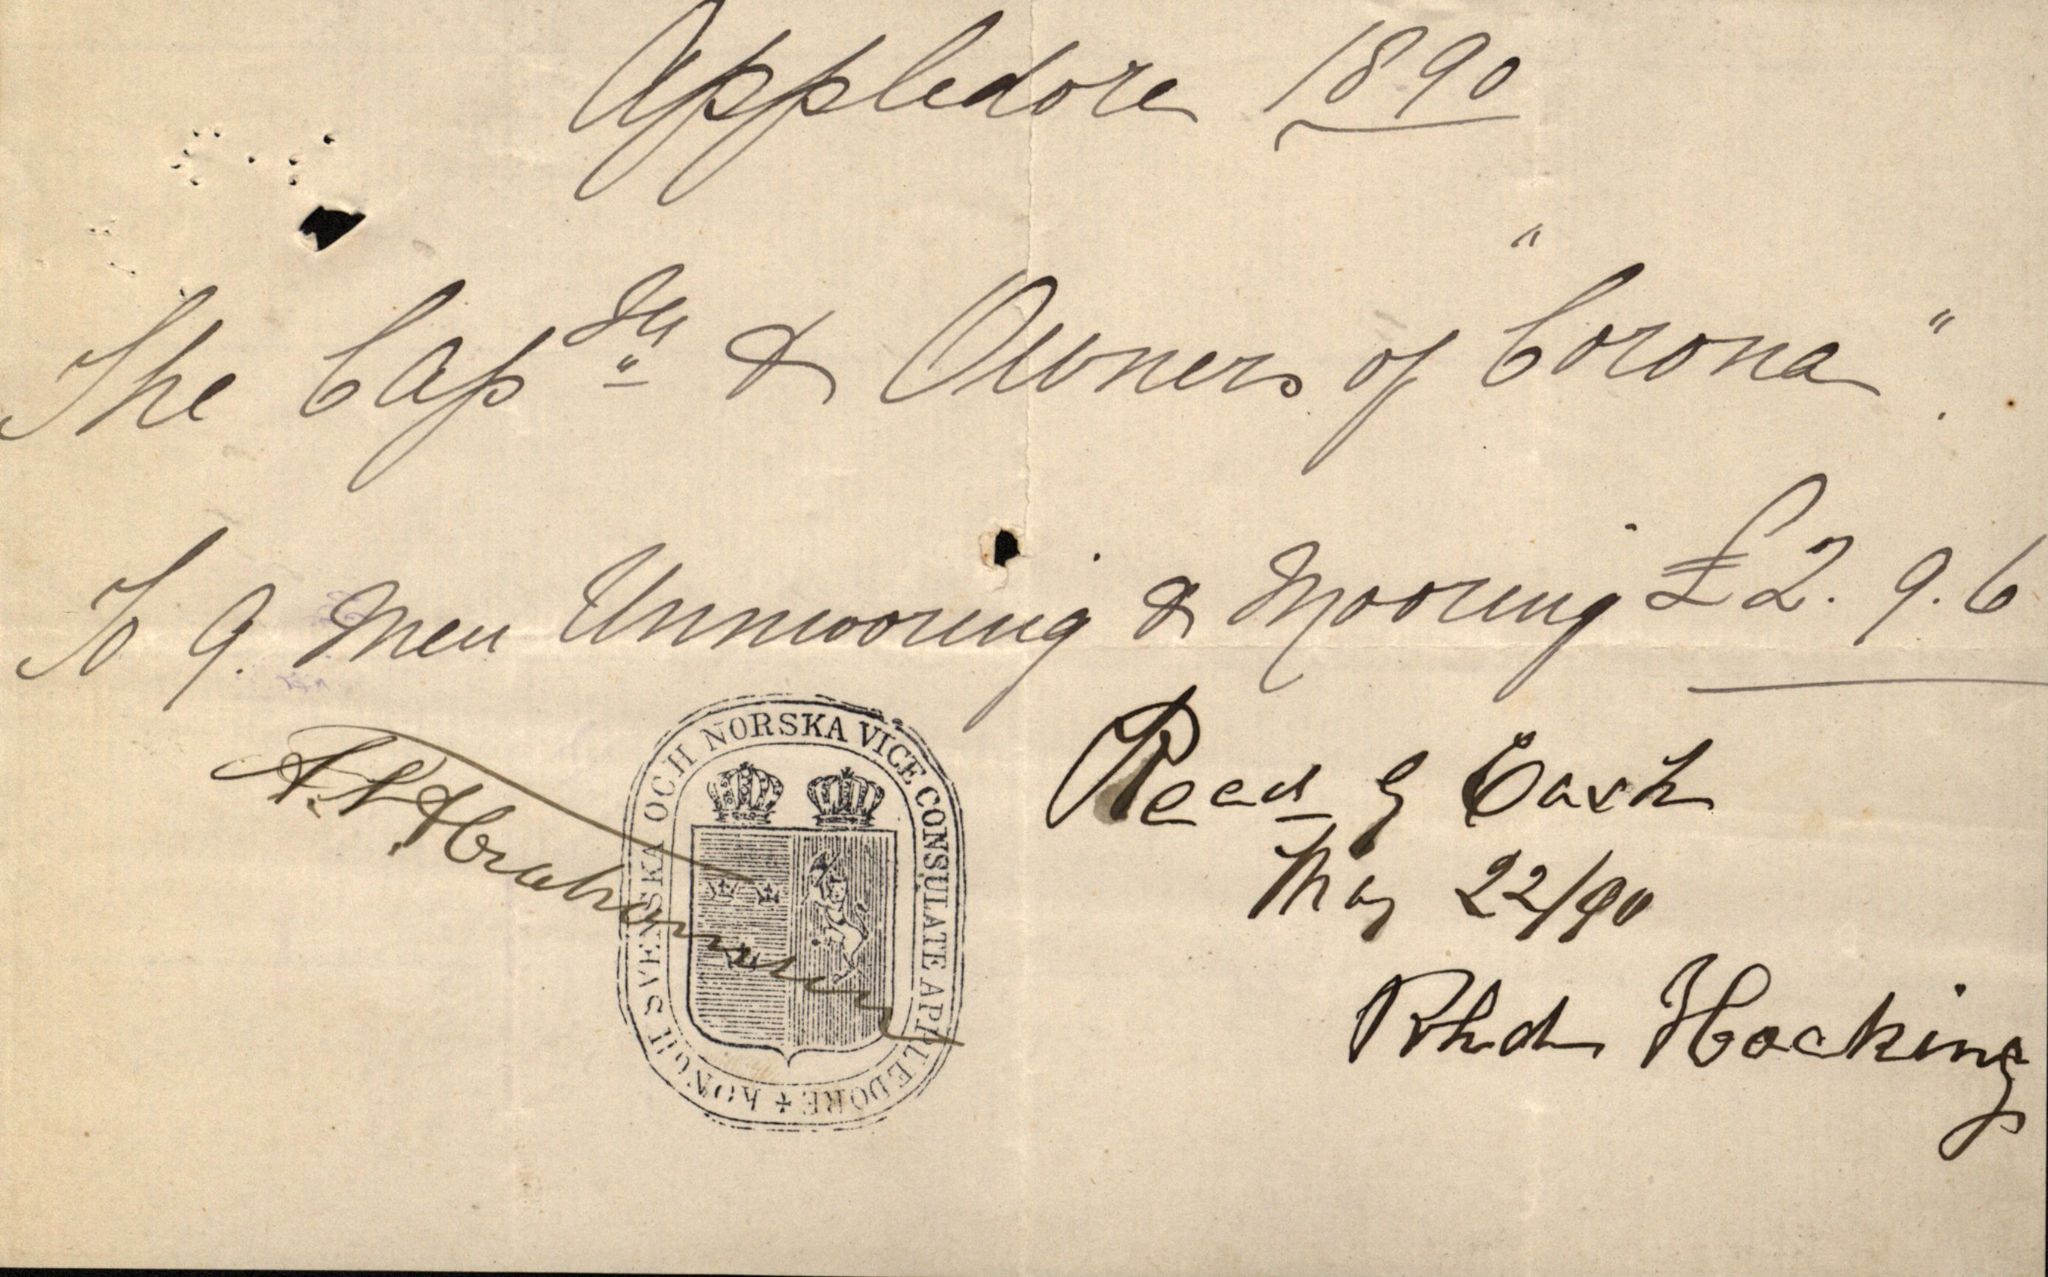 Appledore 1890
The Cap & Owners of "Corona".
To 9. Men Unmooring & Mooring £2. 9. 6
KONGL SVENSKA OCH NORSKA VICE CONSULATE APPLEDORE
Recd Cash
May 22/90
Hocking